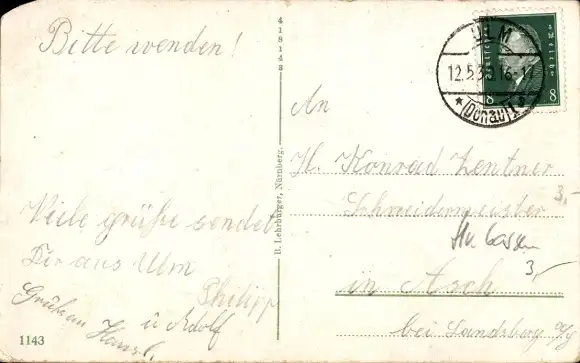 Bitte wenden!
Viele grüße sendet
Dir aus Ulm
Philipp
u Adolf
Grüße an Hansl.
1143
418143
B. Lehrburger, Nürnberg.
ULM
12.5.30.16-17
* (Donau) 1 *
8 8
An
H. Konrad Zentner
Schneidermeister
3,
3,-
in Asch
bei Landsberg a/